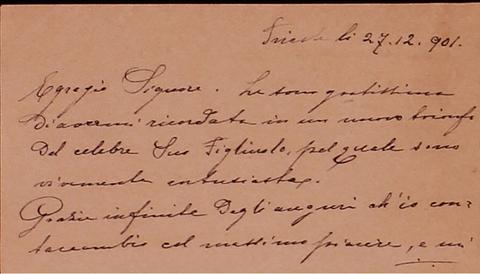 Trieste li 27.12.901.
Egregio Signore. Le sono gratissima
di avermi ricordata in un nuovo trionfo
del celebre Suo Figliuolo, pel quale sono
vivamente entusiasta.
Grazie infinite degli auguri ch'io con-
traccambio col massimo piacere, e mi